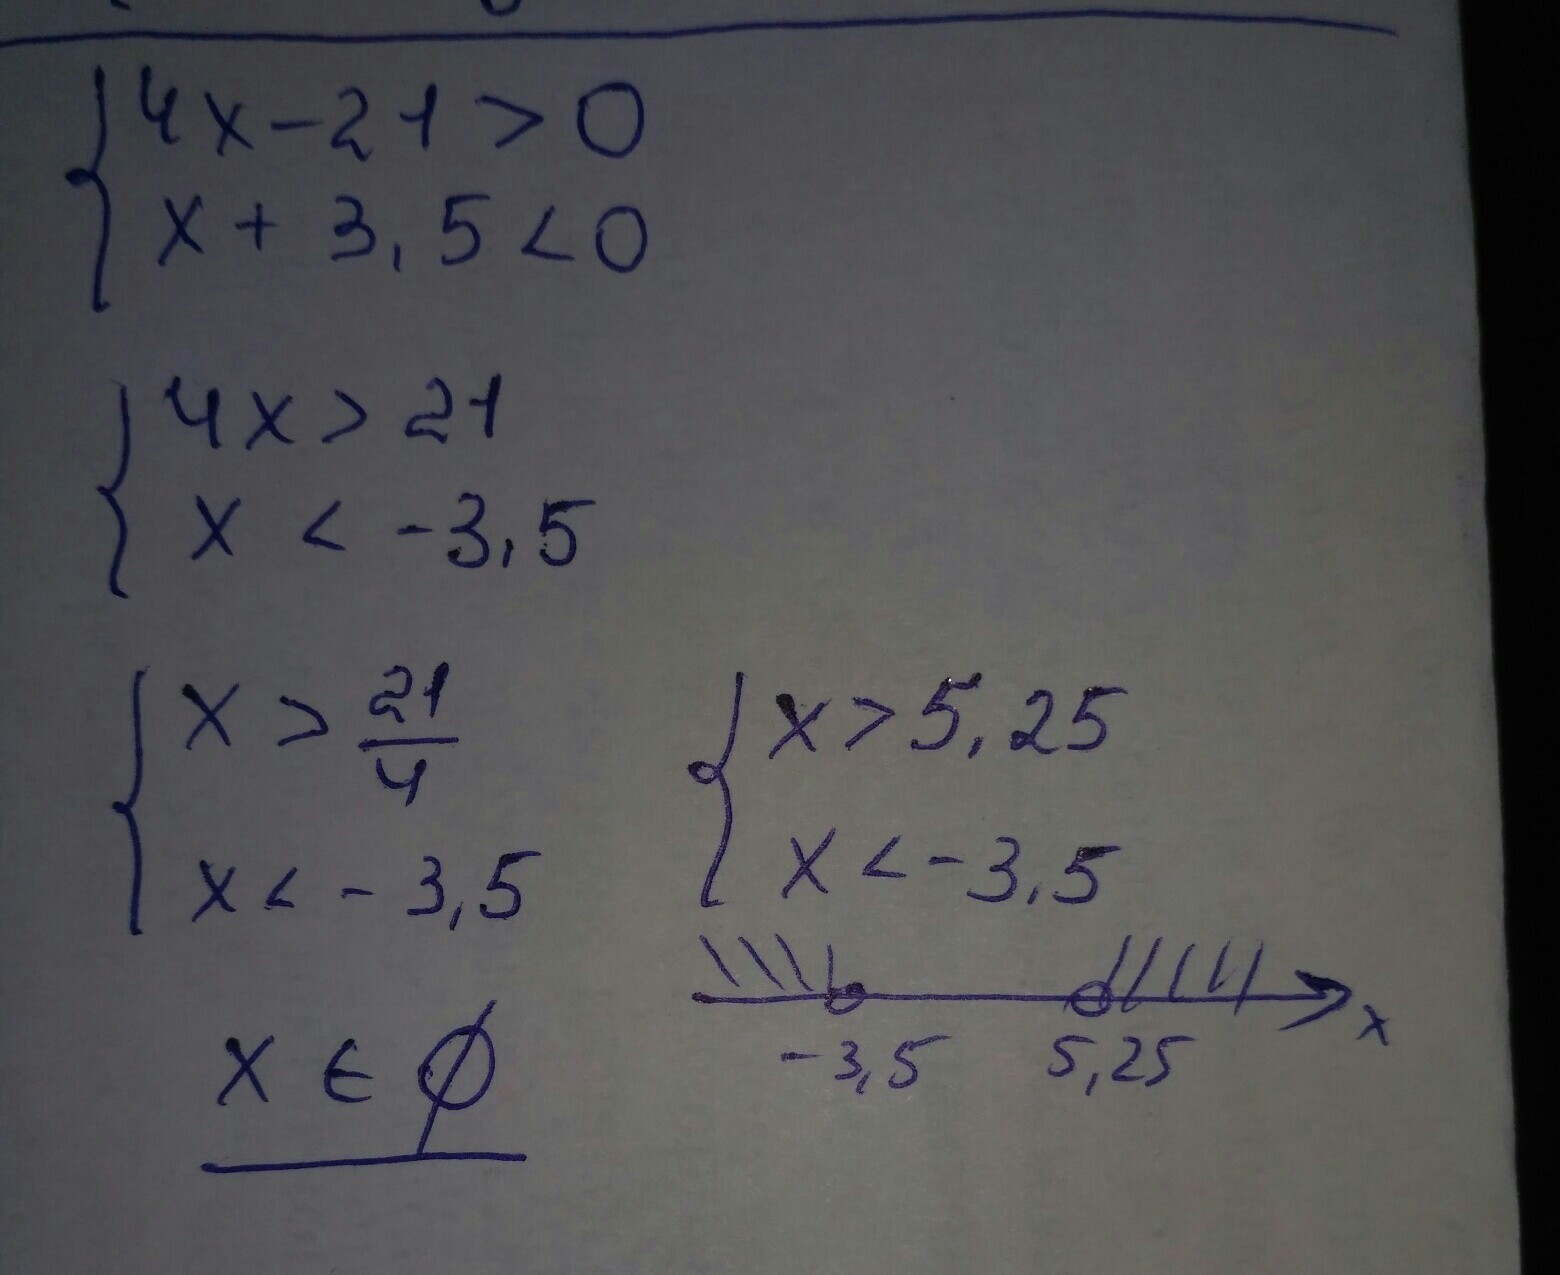 4x-21>0
x+3,5<0
4x>21
x<-3,5
x>21/4
x<-3,5
x>5,25
x<-3,5
-3,5 5,25 x
x∈∅